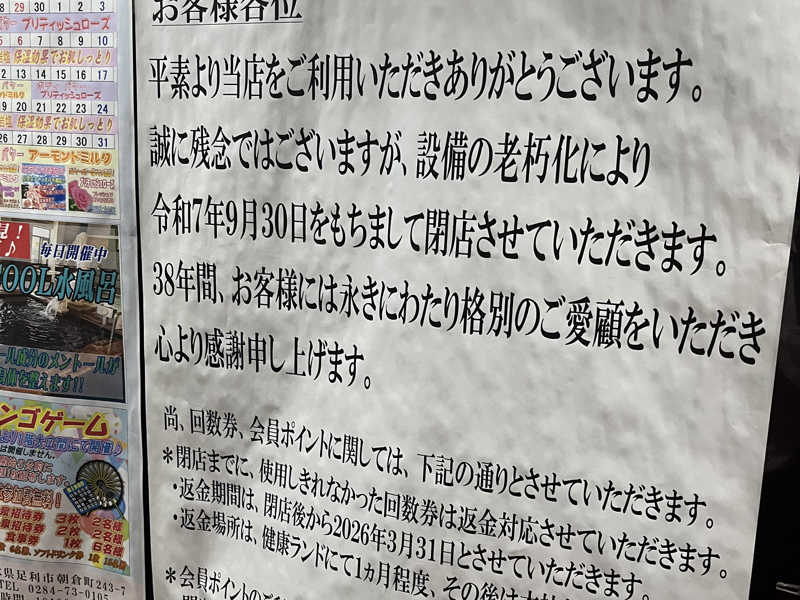 28 29 30 1 2 3
ブリティッシュローズ
5 6 7 8 9 10
保湿効果でお肌しっとり
12 13 14 15 16 17
ブリティッシュローズ
19 20 21 22 23 24
保湿効果でお肌しっとり
26 27 28 29 30 31
アーモンドミルク
毎日開催中
OOL水風呂
ール成分のメントールが
ンゴゲーム
にて開催♪
招待券 3枚 2名様
招待券 2枚 2名様
食事券 1枚 6名様
ソフトドリンク券
県足利市朝倉町243-7
TEL 0284-73-0105
お客様各位
平素より当店をご利用いただきありがとうございます。
誠に残念ではございますが、設備の老朽化により
令和7年9月30日をもちまして閉店させていただきます。
38年間、お客様には永きにわたり格別のご愛顧をいただき
心より感謝申し上げます。
尚、回数券、会員ポイントに関しては、下記の通りとさせていただきます。
*閉店までに、使用しきれなかった回数券は返金対応させていただきます。
・返金期間は、閉店後から2026年3月31日とさせていただきます。
・返金場所は、健康ランドにて1ヵ月程度、その後は
*会員ポイントの